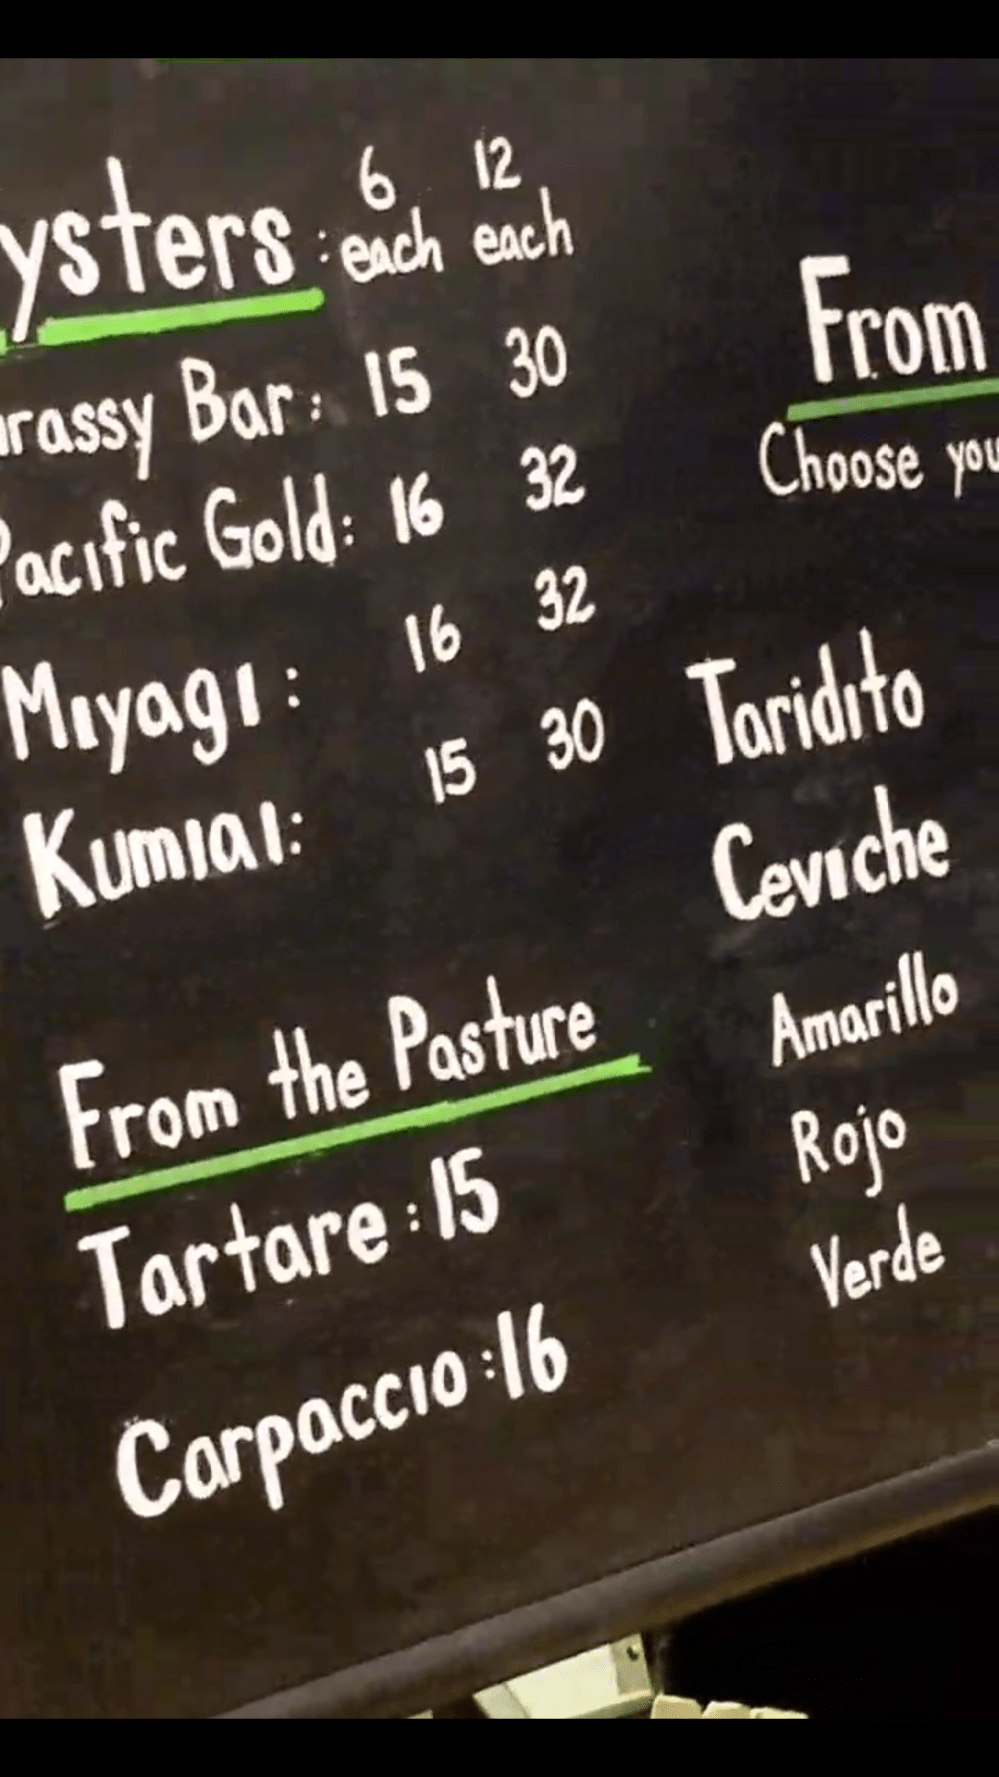 ysters : 6 each 12 each
rassy Bar: 15 30
Pacific Gold: 16 32
Miyagi: 16 32
Kumiai: 15 30
From the Pasture
Tartare: 15
Carpaccio: 16
From
Choose you
Taridito
Ceviche
Amarillo
Rojo
Verde